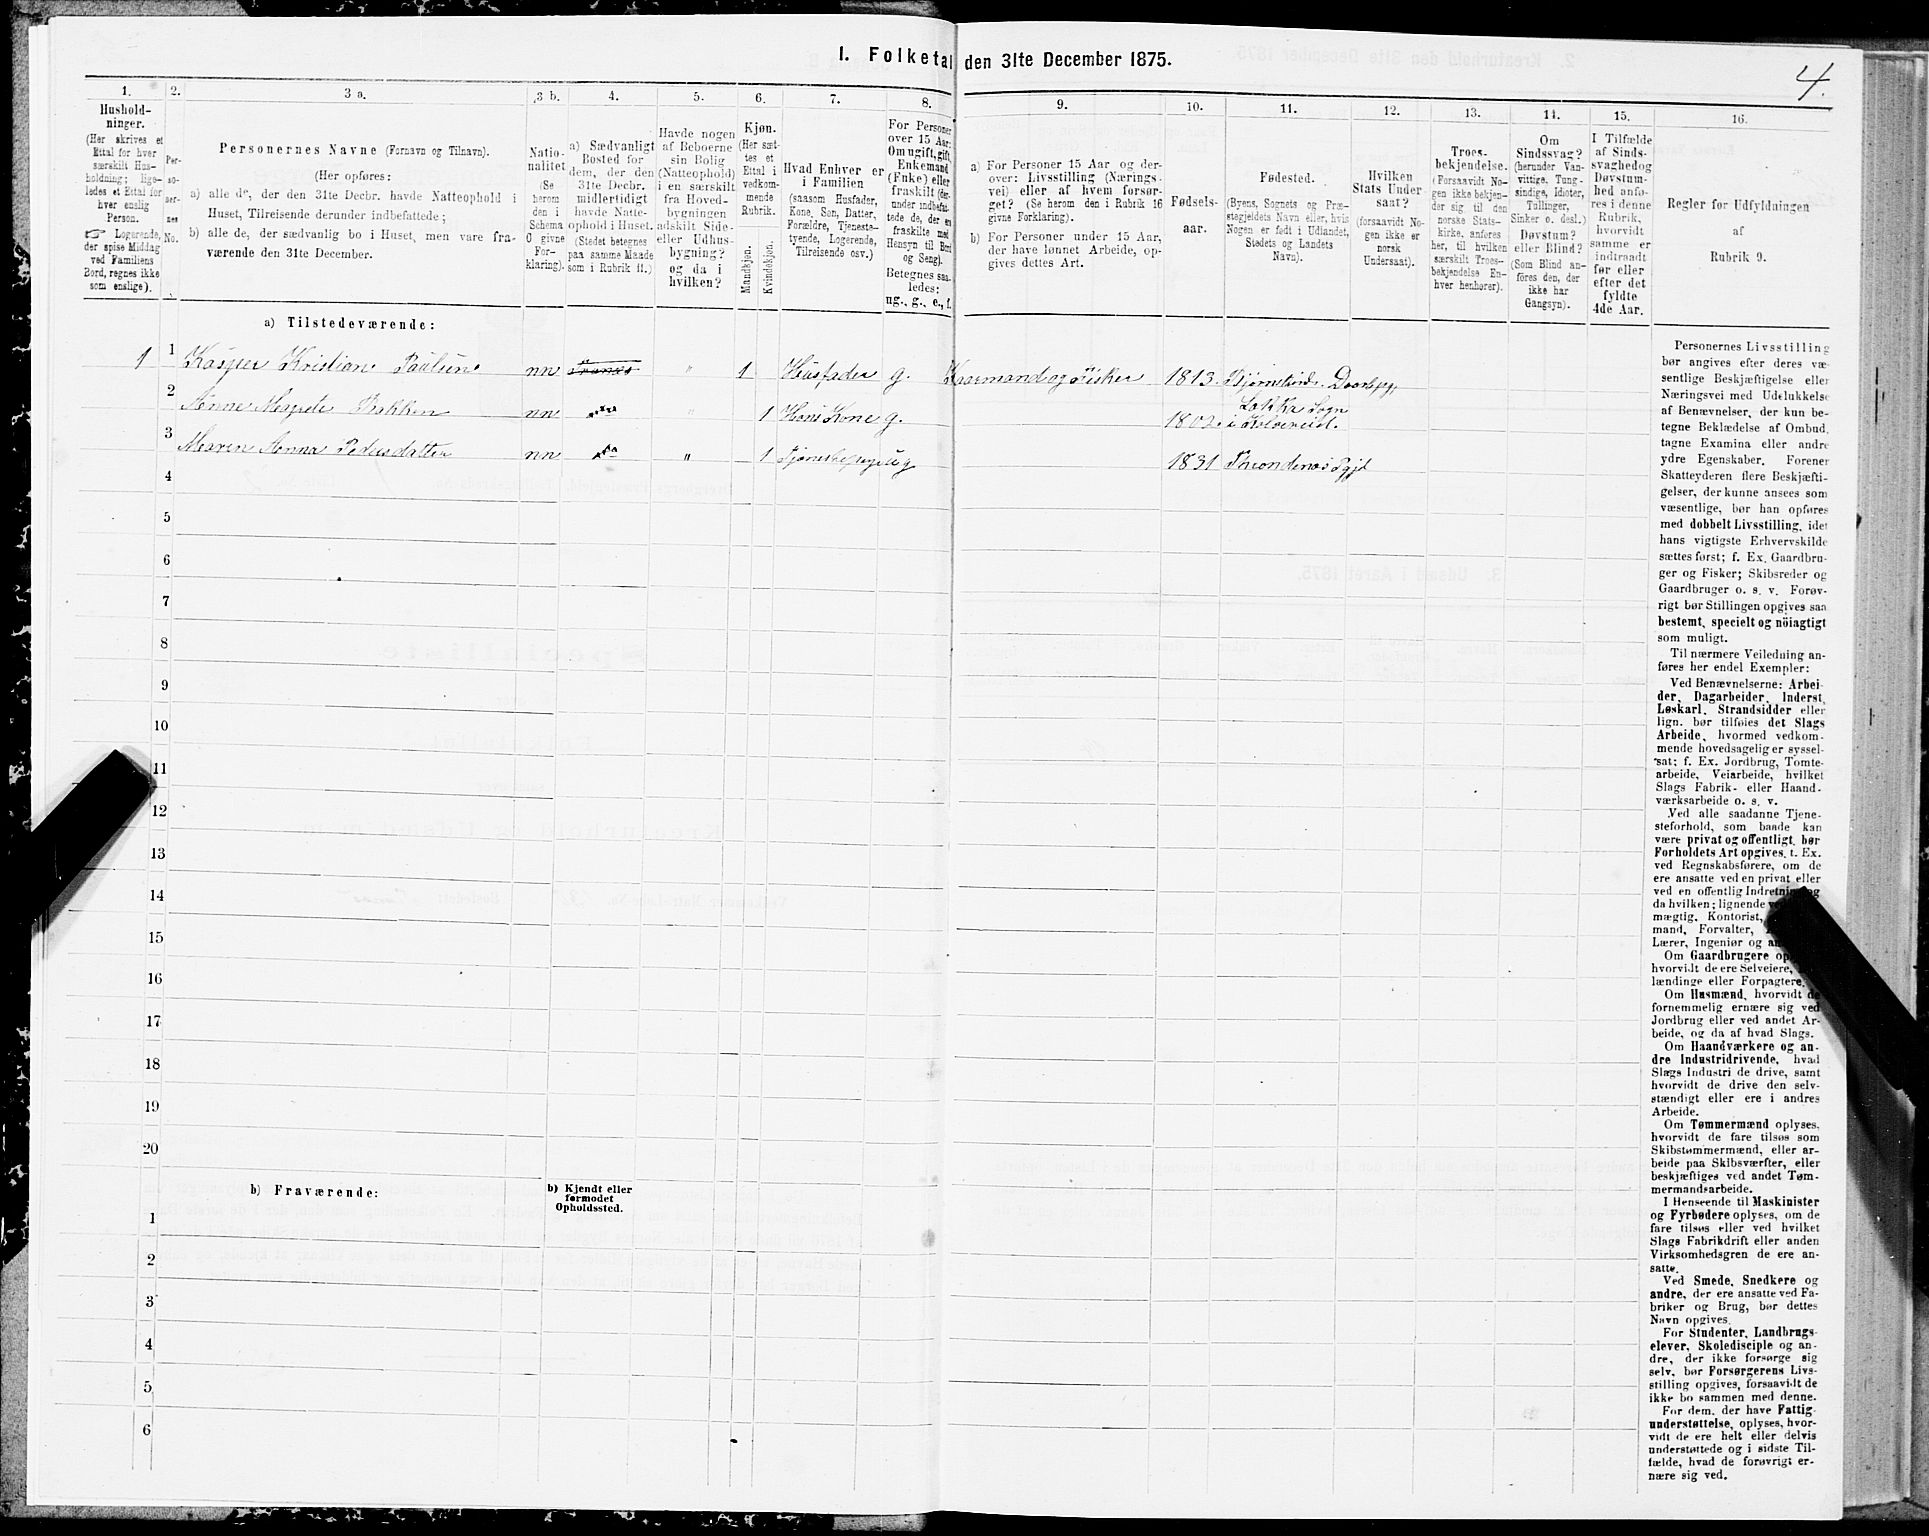 I. Folketal den 31te December 1875.
4.
1.
Hushold-
ninger.
(Her skrives et
Ettal for hver
særskilt Hus-
holdning; lige-
ledes et Ettal for
hver enslig
Person.
☞ Logerende,
der spise Middag
ved Familiens
Bord, regnes ikke
som enslige).
2.
Per-
so-
ner-
nes
No.
3 a.
Personernes Navne (Fornavn og Tilnavn).
(Her opføres:
a) alle de, der den 31te Decbr. havde Natteophold i
Huset, Tilreisende derunder indbefattede;
b) alle de, der sædvanlig bo i Huset, men vare fra-
værende den 31te December.
3 b.
Natio-
nalitet
(Se
herom
den i
Schema
O givne
For-
klaring).
4.
a) Sædvanligt
Bosted for
dem, der den
31te Decbr.
midlertidigt
havde Natte-
ophold i Huset.
(Stedet betegnes
paa samme Maade
som i Rubrik 11.)
5.
Havde nogen
af Beboerne
sin Bolig
(Natteophold)
i en særskilt
fra Hoved-
bygningen
adskilt Side-
eller Udhus-
bygning?
og da i
hvilken?
6.
Kjøn.
(Her sæt-
tes et
Ettal i
vedkom-
mende
Rubrik.
Mandkjøn.
Kvindekjøn.
7.
Hvad Enhver er
i Familien
(saasom Husfader,
Kone, Søn, Datter,
Forældre, Tjeneste-
tyende, Logerende,
Tilreisende osv.)
8.
For Personer
over 15 Aar:
Om ugift, gift,
Enkemand
(Enke) eller
fraskilt (der-
under indbefat-
tede de, der ere
fraskilte med
Hensyn til Bord
og Seng).
Betegnes saa-
ledes:
ug., g., e., f.
9.
a) For Personer 15 Aar og der-
over: Livsstilling (Nærings-
vei) eller af hvem forsør-
get? (Se herom den i Rubrik 16
givne Forklaring).
b) For Personer under 15 Aar,
der have lønnet Arbeide, op-
gives dettes Art.
10.
Fødsels-
aar.
11.
Fødested.
(Byens, Sognets og Præ-
stegjeldets Navn eller, hvis
Nogen er født i Udlandet,
Stedets og Landets
Navn).
12.
Hvilken
Stats Under-
saat?
(forsaavidt No-
gen ikke er
norsk
Undersaat).
13.
Troes-
bekjendelse.
(Forsaavidt No-
gen ikke bekjen-
der sig til den
norske Stats-
kirke, anføres
her, til hvilken
særskilt Troes-
bekjendelse En-
hver henhører).
14.
Om
Sindssvag?
(herunder Van-
vittige, Tung-
sindige, Idioter,
Tullinger,
Sinker o. desl.)
Døvstum?
eller Blind?
(Som Blind an-
føres den, der
ikke har
Gangsyn).
15.
I Tilfælde
af Sinds-
svaghed og
Døvstum-
hed anfø-
res i denne
Rubrik,
hvorvidt
samme er
indtraadt
før eller
efter det
fyldte
4de Aar.
16.
Regler for Udfyldningen
af
Rubrik 9.
a) Tilstedeværende:
1 1 Kasper Kristian Paulsen nn " 1 Husfader g. Kaarmand og Fisker 1813.
2 Anne nn " 1 Hans Kone g. 1802
3 Maren Anna Pedersdatter nn " 1 g 1831
4
5
6
7
8
9
10
11
12
13
14
15
16
17
18
19
20
b) Fraværende:
b) Kjendt eller
formodet
Opholdssted.
1
2
3
4
5
6
Personernes Livsstilling
bør angives efter deres væ-
sentlige Beskjæftigelse eller
Næringsvei med Udelukkelse
af Benævnelser, der kun be-
tegne Beklædelse af Ombud,
tagne Examina eller andre
ydre Egenskaber. Forener
Skatteyderen flere Beskjæfti-
gelser, der kunne ansees som
væsentlige, bør han opføres
med dobbelt Livsstilling, idet
hans vigtigste Erhvervskilde
sættes først; f. Ex. Gaardbru-
ger og Fisker; Skibsreder og
Gaardbruger o. s. v. Forøv-
rigt bør Stillingen opgives saa
bestemt, specielt og nöiagtigt
som muligt.
Til nærmere Veiledning an-
føres her endel Exempler:
Ved Benævnelserne: Arbei-
der, Dagarbeider, Inderst,
Løskarl, Strandsidder eller
lign. bør tilføies det Slags
Arbeide, hvormed vedkom-
mende hovedsagelig er syssel-
sat; f. Ex. Jordbrug, Tomte-
arbeide, Veiarbeide, hvilket
Slags Fabrik- eller Haand-
værksarbeide o. s. v.
Ved alle saadanne Tjene-
steforhold, som baade kan
være privat og offentligt, bør
Forholdets Art opgives, t. Ex.
ved Regnskabsførere, om de
ere ansatte ved en privat eller
ved en offentlig Indretning og
da hvilken; lignende
mægtig, Kontorist,
mand, Forvalter,
Lærer, Ingeniør og
Om Gaardbrugere
hvorvidt de ere Selveiere,
lændinge eller Forpagtere.
Om Husmænd, hvorvidt de
fornemmelig ernære sig ved
Jordbrug eller ved andet Ar-
beide, og da af hvad Slags.
Om Haandværkere og an-
dre Industridrivende, hvad
Slags Industri de drive, samt
hvorvidt de drive den selv-
stændigt eller ere i andres
Arbeide.
Om Tømmermænd oplyses,
hvorvidt de fare tilsøs som
Skibstømmermænd, eller ar-
beide paa Skibsværfter, eller
beskjæftiges ved andet Tøm-
mermandsarbeide.
I Henseende til Maskinister
og Fyrbødere oplyses, om de
fare tilsøs eller ved hvilket
Slags Fabrikdrift eller anden
Virksomhedsgren de ere an-
satte.
Ved Smede, Snedkere og
andre, der ere ansatte ved Fa-
briker og Brug, bør dettes
Navn opgives.
For Studenter, Landbrugs-
elever, Skoledisciple og an-
dre, der ikke forsørge sig
selv, bør Forsørgerens Livs-
stilling opgives, forsaavidt de
ikke bo sammen med denne.
For dem, der have Fattig-
understøttelse, oplyses, hvor-
vidt de ere helt eller delvis
understøttede og i sidste Til-
fælde, hvad de forøvrigt er-
nære sig ved.